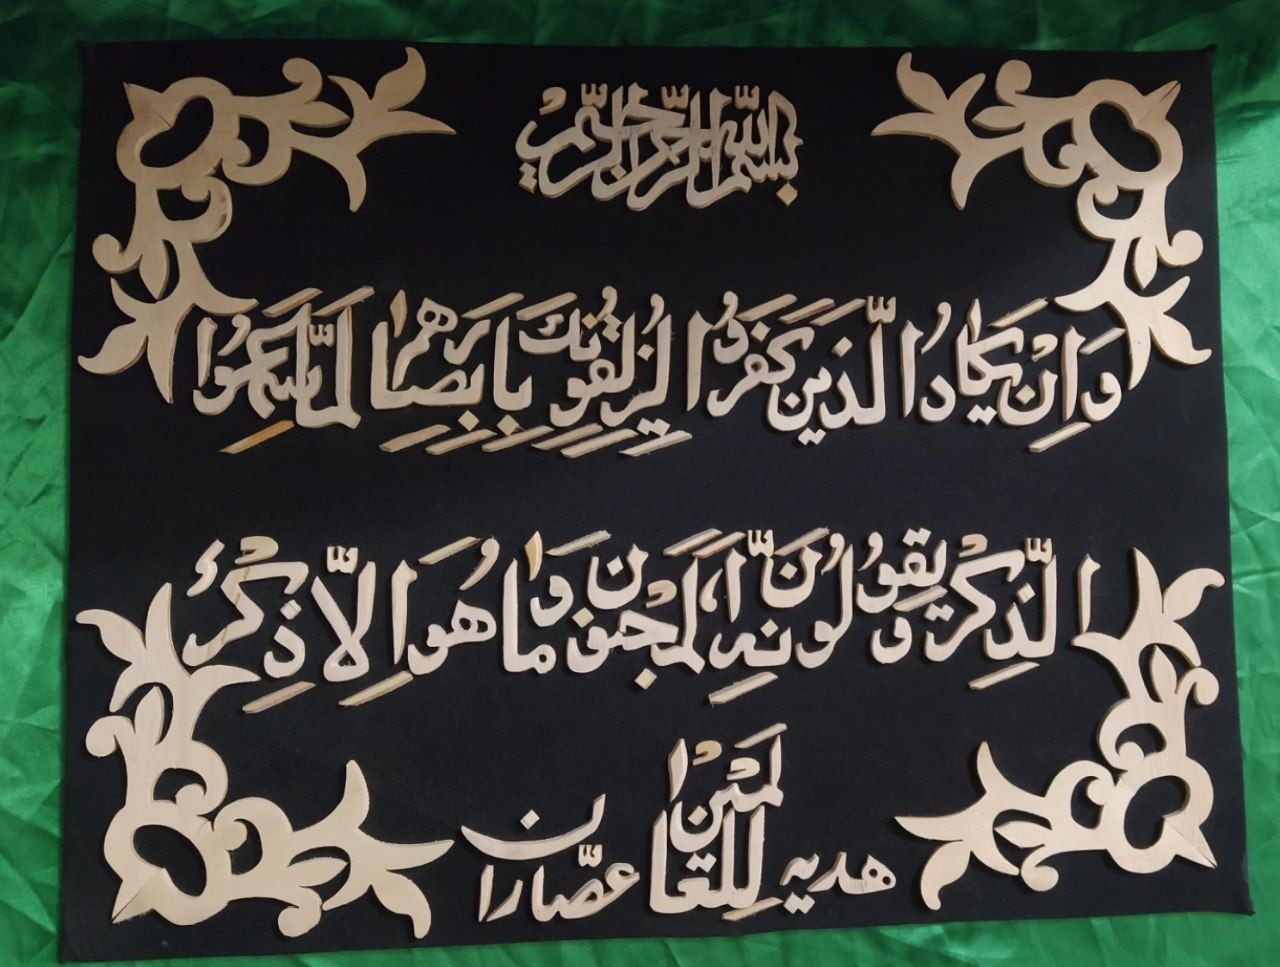 بسم الله الرحمن الرحیم
وَاِنْ یَکادُ الَّذینَ کَفَرُوا لَیُزْلِقُونَکَ بِاَبْصارِهِمْ لَمَّا سَمِعُوا
الذِّکْرَ وَیَقُولُونَ اِنَّهُ لَمَجْنُونٌ وَما هُوَ اِلّا ذِکْرٌ
لِلْعالَمینَ
هدیه عصّاران